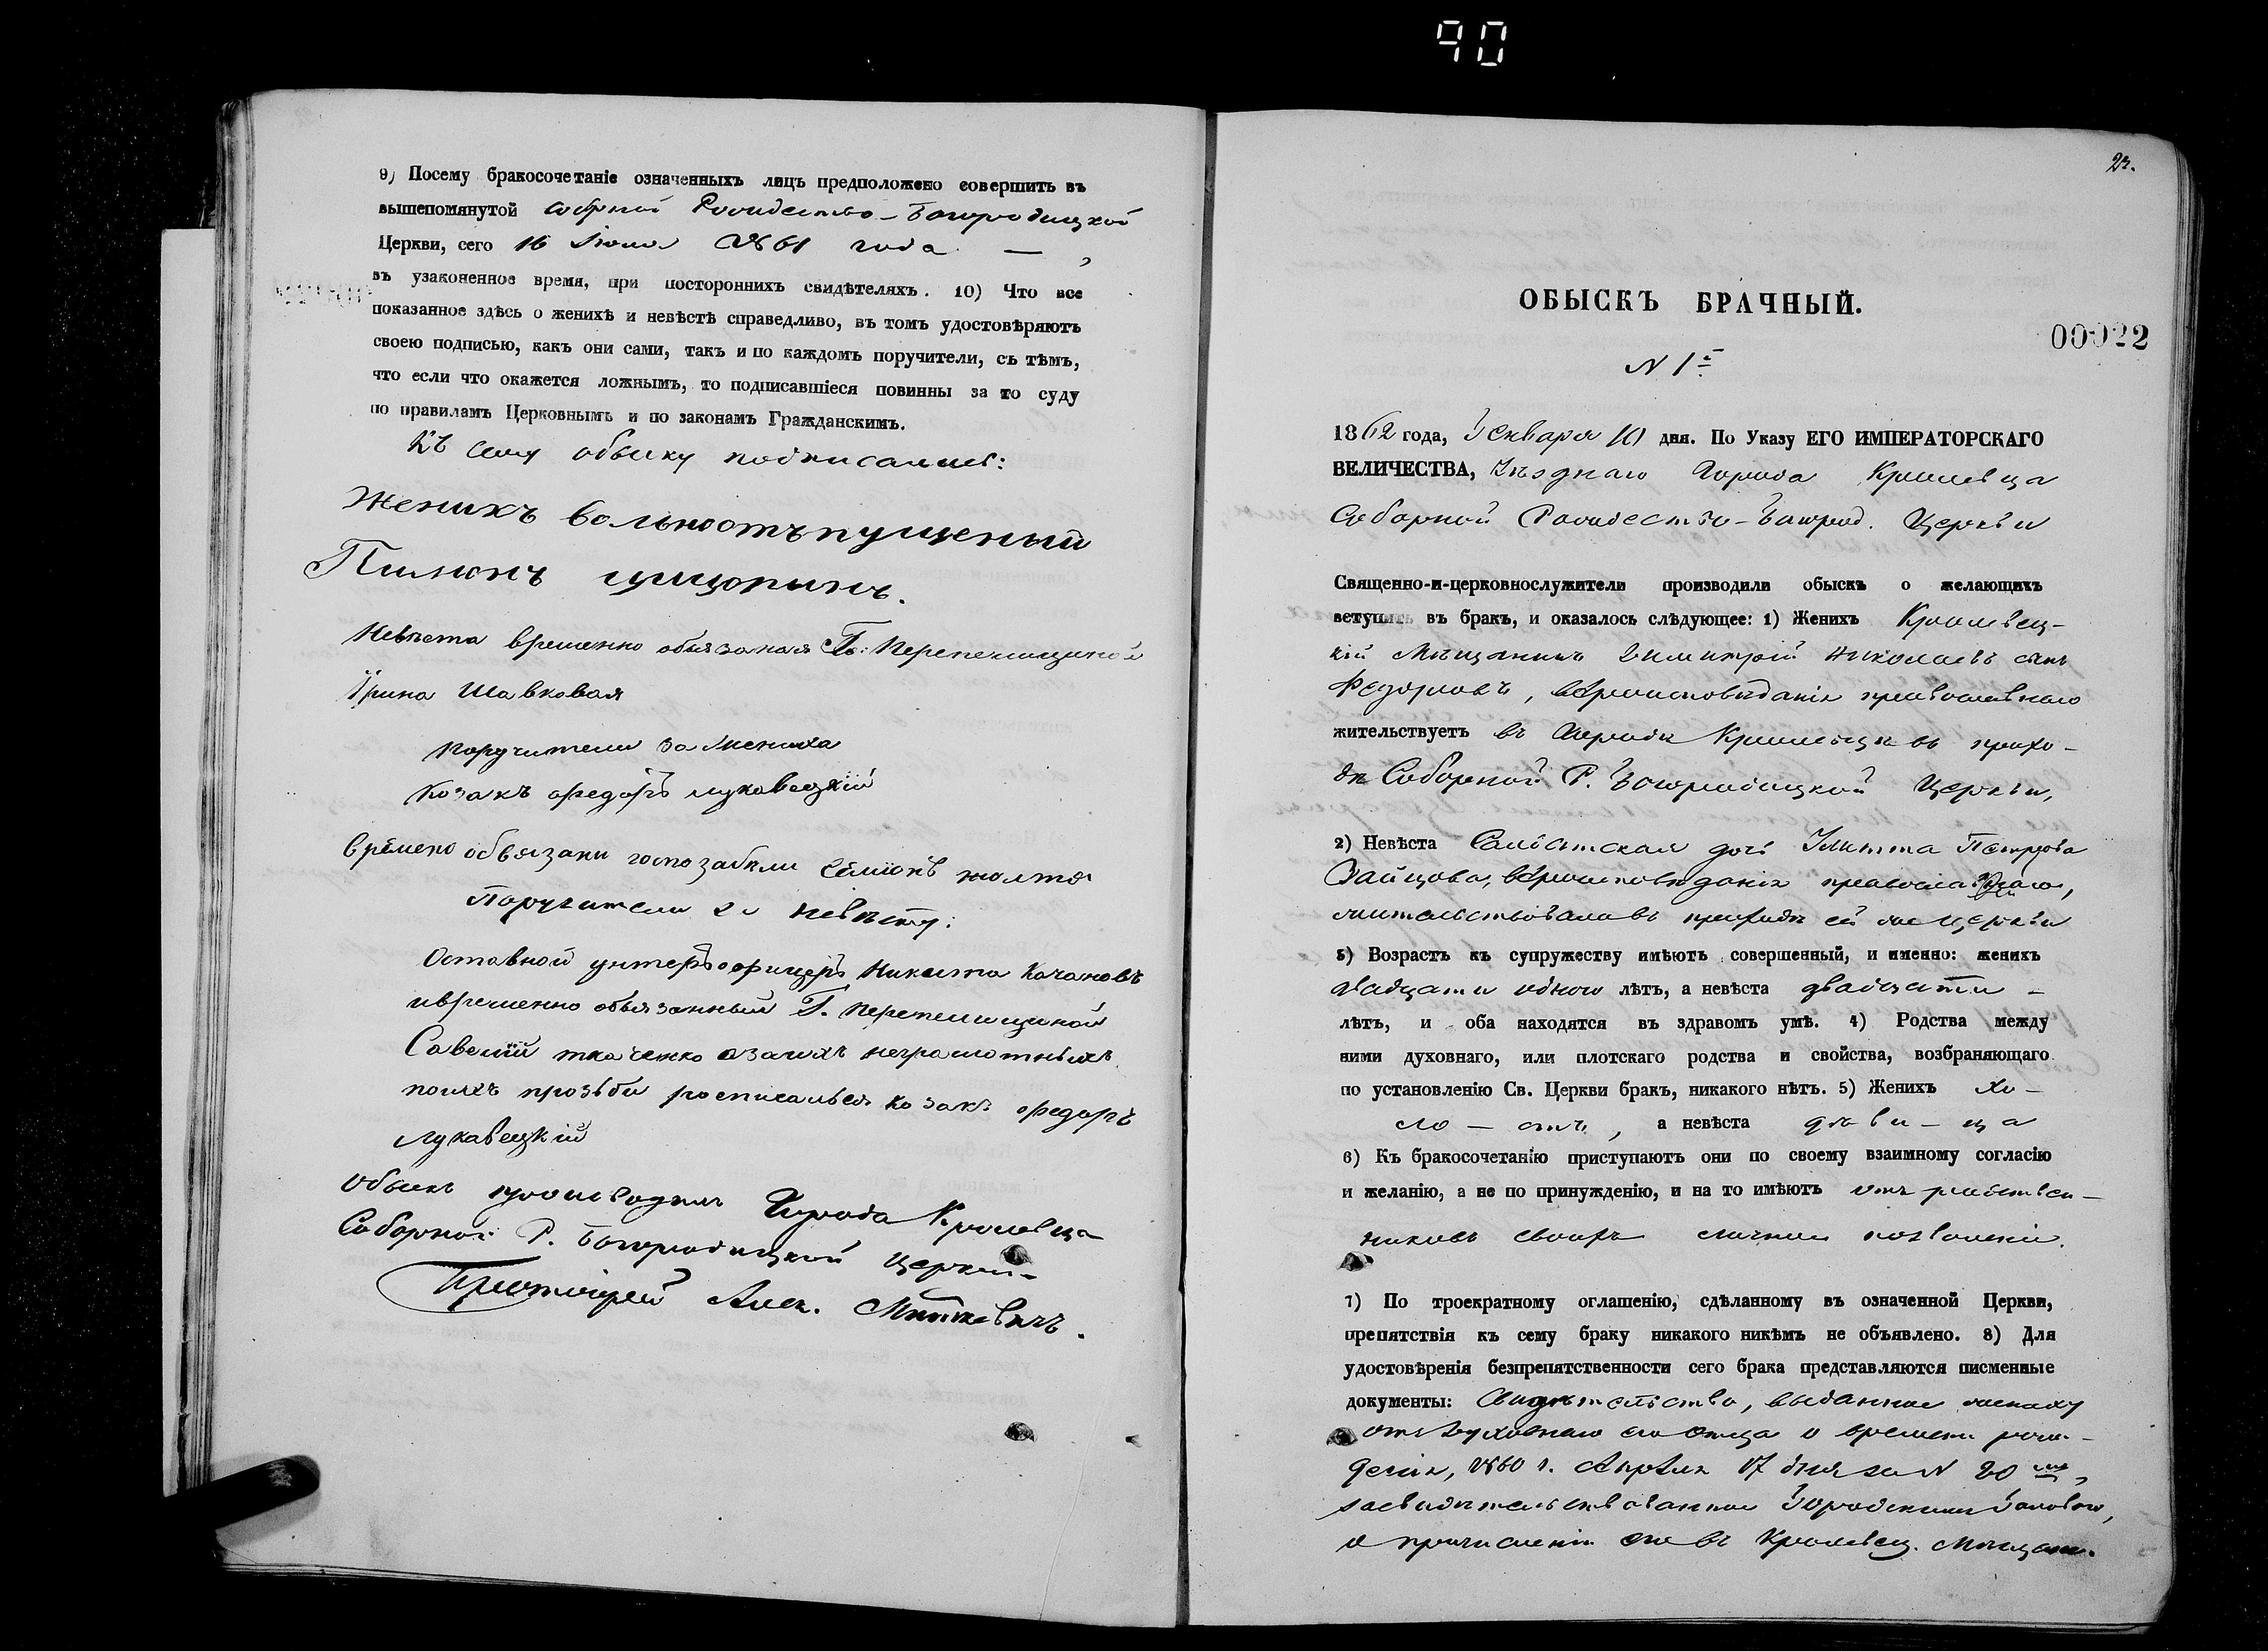 90
9) Посему бракосочетаніе означенныхъ лицъ предположено совершить въ
вышепомянутой Соборной Рождество-Богородицкой
Церкви, сего 16 1861 года — ,
въ узаконенное время, при постороннихъ свидѣтеляхъ. 10) Что все
показанное здѣсь о женихѣ и невѣстѣ справедливо, въ томъ удостовѣряютъ
своею подписью, какъ они сами, такъ и по каждомъ поручители, съ тѣмъ,
что если что окажется ложнымъ, то подписавшіеся повинны за то суду
по правиламъ Церковнымъ и по законамъ Гражданскимъ.
Къ сему обыску подписались:
Женихъ вольноотъпущеный
Невѣста временно обязаная Г. Перепелициной
Ірина Шавковая
Поручители за жениха
Козакъ Федоръ Лукавецкій
времено обвязани
Поручители по невѣсту:
Отставной унтеръофицеръ Никита Качановъ
ивременно обязанный Г. Перепелициной
Савелій Ткаченко азанихъ неграмотныхъ
поихъ прозьби росписалься козакъ Федоръ
Лукавецкій
Обыскъ производилъ Города Кролевца
Соборной Р. Богородицкой Церкви
Протоіерей Алек. Миткевичъ.
23.
ОБЫСКЪ БРАЧНЫЙ.
00022
N 1й
1862 года, Января 10 дня. По Указу ЕГО ИМПЕРАТОРСКАГО
ВЕЛИЧЕСТВА, Уѣзднаго Города Кролевца
Соборной Рождество-Богород. Церкви
Священно-и-церковнослужители производили обыскъ о желающихъ
вступить въ бракъ, и оказалось слѣдующее: 1) Женихъ Кролевец-
кій Мѣщанинъ Димитрій Николаевъ сынъ
Федоровъ, вѣроисповѣданія православнаго
жительствуетъ въ Городѣ Кролевцѣ въ прихо-
дѣ Соборной Р. Богородицкой Церкви,
2) Невѣста Солдатская дочь Улитта Петрова
Зайцова, вѣроисповѣданія православнаго,
жительствовала въ приходѣ сей же церкви
3) Возрастъ къ супружеству имѣютъ совершенный, и именно: женихъ
двадцати одного лѣтъ, а невѣста двадцати –
лѣтъ, и оба находятся въ здравомъ умѣ. 4) Родства между
ними духовнаго, или плотскаго родства и свойства, возбраняющаго
по установленію Св. Церкви бракъ, никакого нѣтъ. 5) Женихъ хо-
ло – стъ, а невѣста дѣви – ца
6) Къ бракосочетанію приступаютъ они по своему взаимному согласію
и желанію, а не по принужденію, и на то имѣютъ отъ родствен-
никовъ своихъ личное позволеніе.
7) По троекратному оглашенію, сдѣланному въ означенной Церкви,
препятствія къ сему браку никакого никѣмъ не объявлено. 8) Для
удостовѣренія безпрепятственности сего брака представляются писменные
документы: Свидѣтельство, выданное жениху
отъ Духовнаго его Отца о времени рож-
денія, 1860 г. Апрѣля 17 дня за N 20,
засвидѣтельствованное Городскимъ Головою,
о причисленіи его въ Кролевец. Мѣщане.